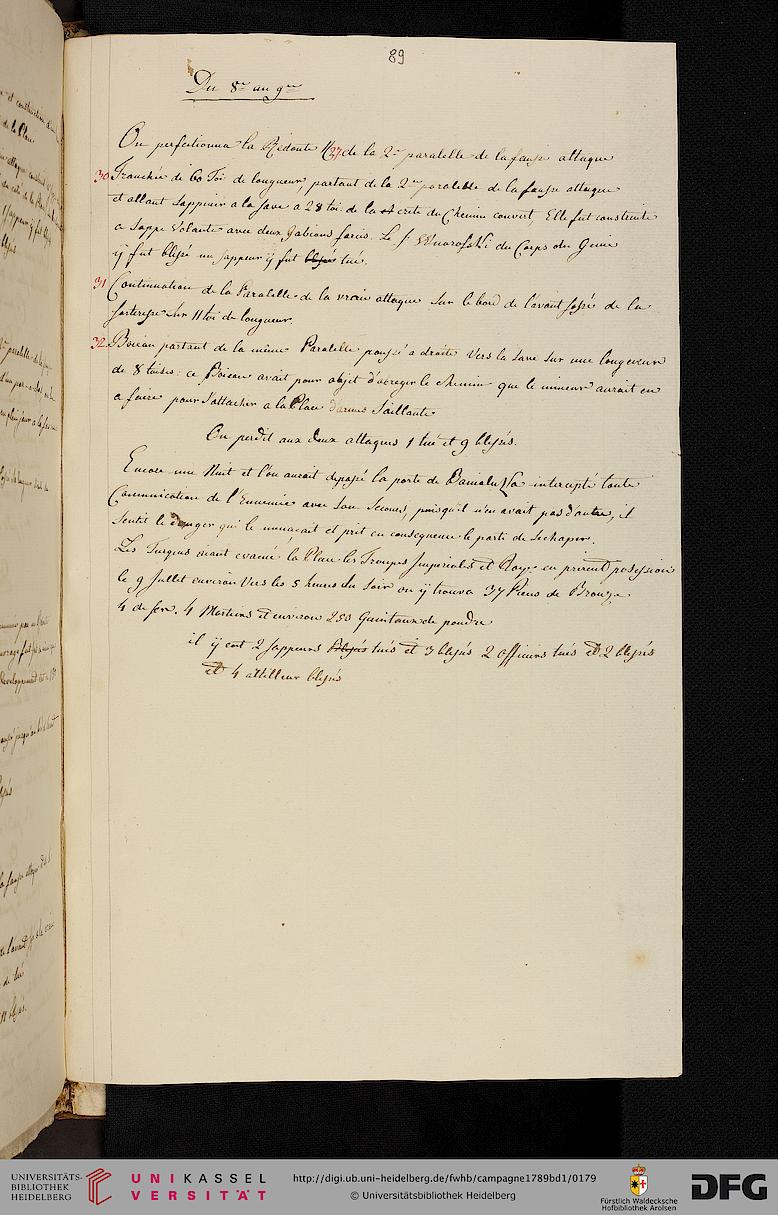 89
Du 8me au 9me
On perfectionna la Redoute N 27 de la 2me paralelle de la fausse attaque
30 Tranchée de 60 Toi de longueur, partant de la 2me paralelle de la fausse attaque
et allant sappuier a la Save a 28 toi. de la crete du Chemin couvert, Elle fut construite
a Sappe Volante avec deux gabions farcis. Le Sr du Corps du Genie
ÿ fut blessé un sappeur ÿ fut blessé tué.
31 Continuation de la Paralelle de la vraie attaque sur le bord de lavant fossé de la
forteresse sur 11 toi de longueur.
32 Boieau partant de la même Paralelle poussé a droite vers la Save sur une longeueur
de 8 toises: ce Boieau avait pour objet d'abreger le chemin que le mineur aurait eu
a faire pour S'attacher a la Place d'armes Saillante
On perdit aux deux attaques 1 tué et 9 blessés.
Encore une Nuit et l'on aurait depassé la porte de Banialuka intercepté toute
Communication de l'Ennemie avec son Secours, puisqu'il n'en avait pas d'autre, il
Sentit le danger qui le menaçait et prit en consequence le parti de Sechaper.
Les Turques aiant evacué la Place les Troupes Imperiales et Roy. en prirent possession
le 9 Juillet environ vers les 5 heures du Soir on ÿ trouva 37 Pieces de Bronze
4 de fer. 4 Mortiers et environ 250 Quintaux de poudre
il ÿ eut 2 sappeurs blessés tués et 3 blessés 2 officiers tués et 2 blessés
et 4 attilleur blessés
UNIVERSITÄTS-
BIBLIOTHEK
HEIDELBERG
UNIKASSEL
VERSITÄT
http://digi.ub.uni-heidelberg.de/fwhb/campagne1789bd1/0179
© Universitätsbibliothek Heidelberg
Fürstlich Waldecksche
Hofbibliothek Arolsen
DFG